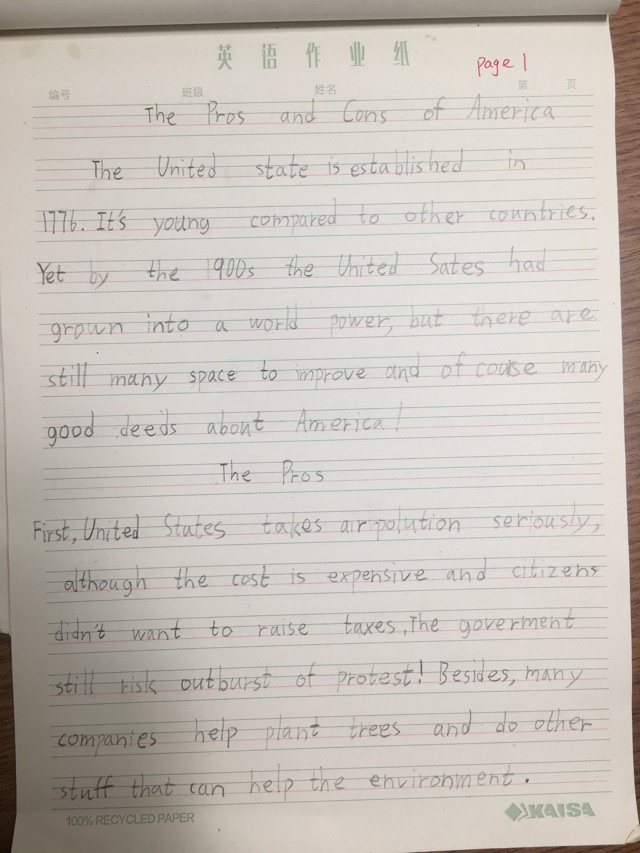 英语作业纸
page 1
编号 班级 姓名 第 页
The Pros and Cons of America
The United state is established in
1776. It's young compared to other countries.
Yet by the 1900s the United Sates had
grown into a world power, but there are
still many space to improve and of couse many
good deeds about America!
The Pros
First, United States takes air polution seriously,
although the cost is expensive and citizens
didn't want to raise taxes, The goverment
still risk outburst of protest! Besides, many
companies help plant trees and do other
stuff that can help the environment.
100% RECYCLED PAPER KAISA